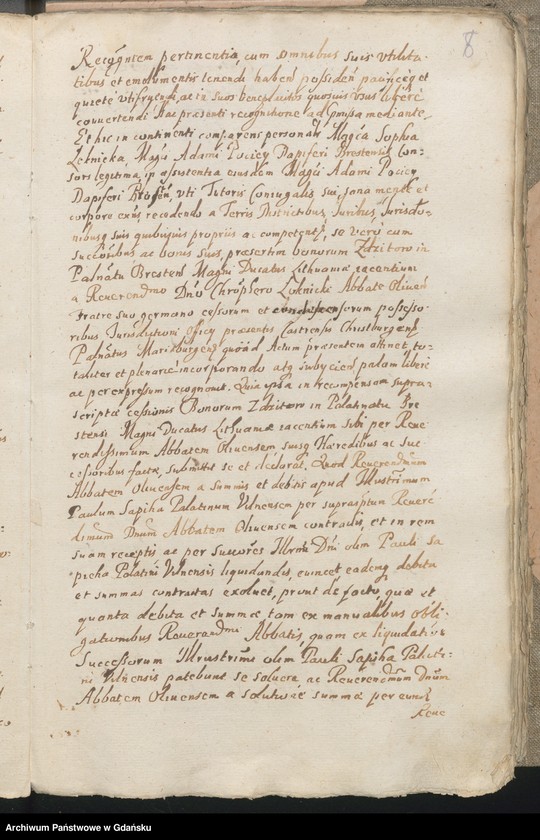 8
Recogñtem pertinentia, cum omnibus suis vtilita-
tibus et emolumentis tenendi habeñ possideñ et
quietè vtifruendi, ac in suos beneplacitos quosuis vsus liberè
conuertendi Hac presenti recognitione ad mediante,
Et hic in continenti comparens personalr Mgffca Sophia
Letnicka Magci Adami Pociey Dapiferi Brestensis Con-
sors legitima, in assistentia eiusdem Magci Adami Pociey
Dapiferi vti Tutoris Coniugalis sui, sana mente et
corpore exns recedendo a Terris Districtibus, Iuribus, Iurisdi-
nibusq suis quibusuis propriis ac competent, se vero cum
successoribus ac bonis suis, praesertim bonorum Zdzitow in
Palnãtu Bresteñ Magni Ducatus Lithuaniæ iacentium
a Reuerendmo Dño Abbate Oliueñ
fratre suo germano cessorum et possesso-
ribus Iurisdictioni Officy præsentis Castrensis Christburgeñ
Palnãtus Mariæburgeñ quoad Actum præsentem attinet, to-
taliter et plenarie incorporando atq subyciend palam liberè
ac per expressum recognouit. Quia ipsa in recompensam supra-
scriptæ cessionis Bonorum Zdzitow in Palatinatu Bre
stensi Magni Ducatus Lithuaniæ iacentium Sibi per Reue
rendissimum Abbatem Oliuensem suisq Hæredibus ac Suc
cessoribus factæ, submittit se et declarat, Quod Reuerendmum
Abbatem Oliuensem a summis et debitis apud Illustrmum
Paulum Sapiha Palatinum Vilnensem per suprascriptum Reuere
dimum Dnum Abbatem Oliuensem contractis, et in rem
suam receptis ac per Sucõres Illrmi Dni olim Pauli Sa
pieha Palatini Vilnensis liquidandis, euincet eademq debita
et summas contractas exoluet, prout de facto, quæ et
quanta debita et summæ tam ex manualibus obli-
gationibus Reuerendmi Abbatis, quam ex liquidatione
Successorum Illrustrimi olim Pauli Sapiha Palati-
ni Vilnensis patebunt se soluere ac Reuerendmum Dnum
Abbatem Oliuensem a solutione summæ per eund
Reue
Archiwum Państwowe w Gdańsku